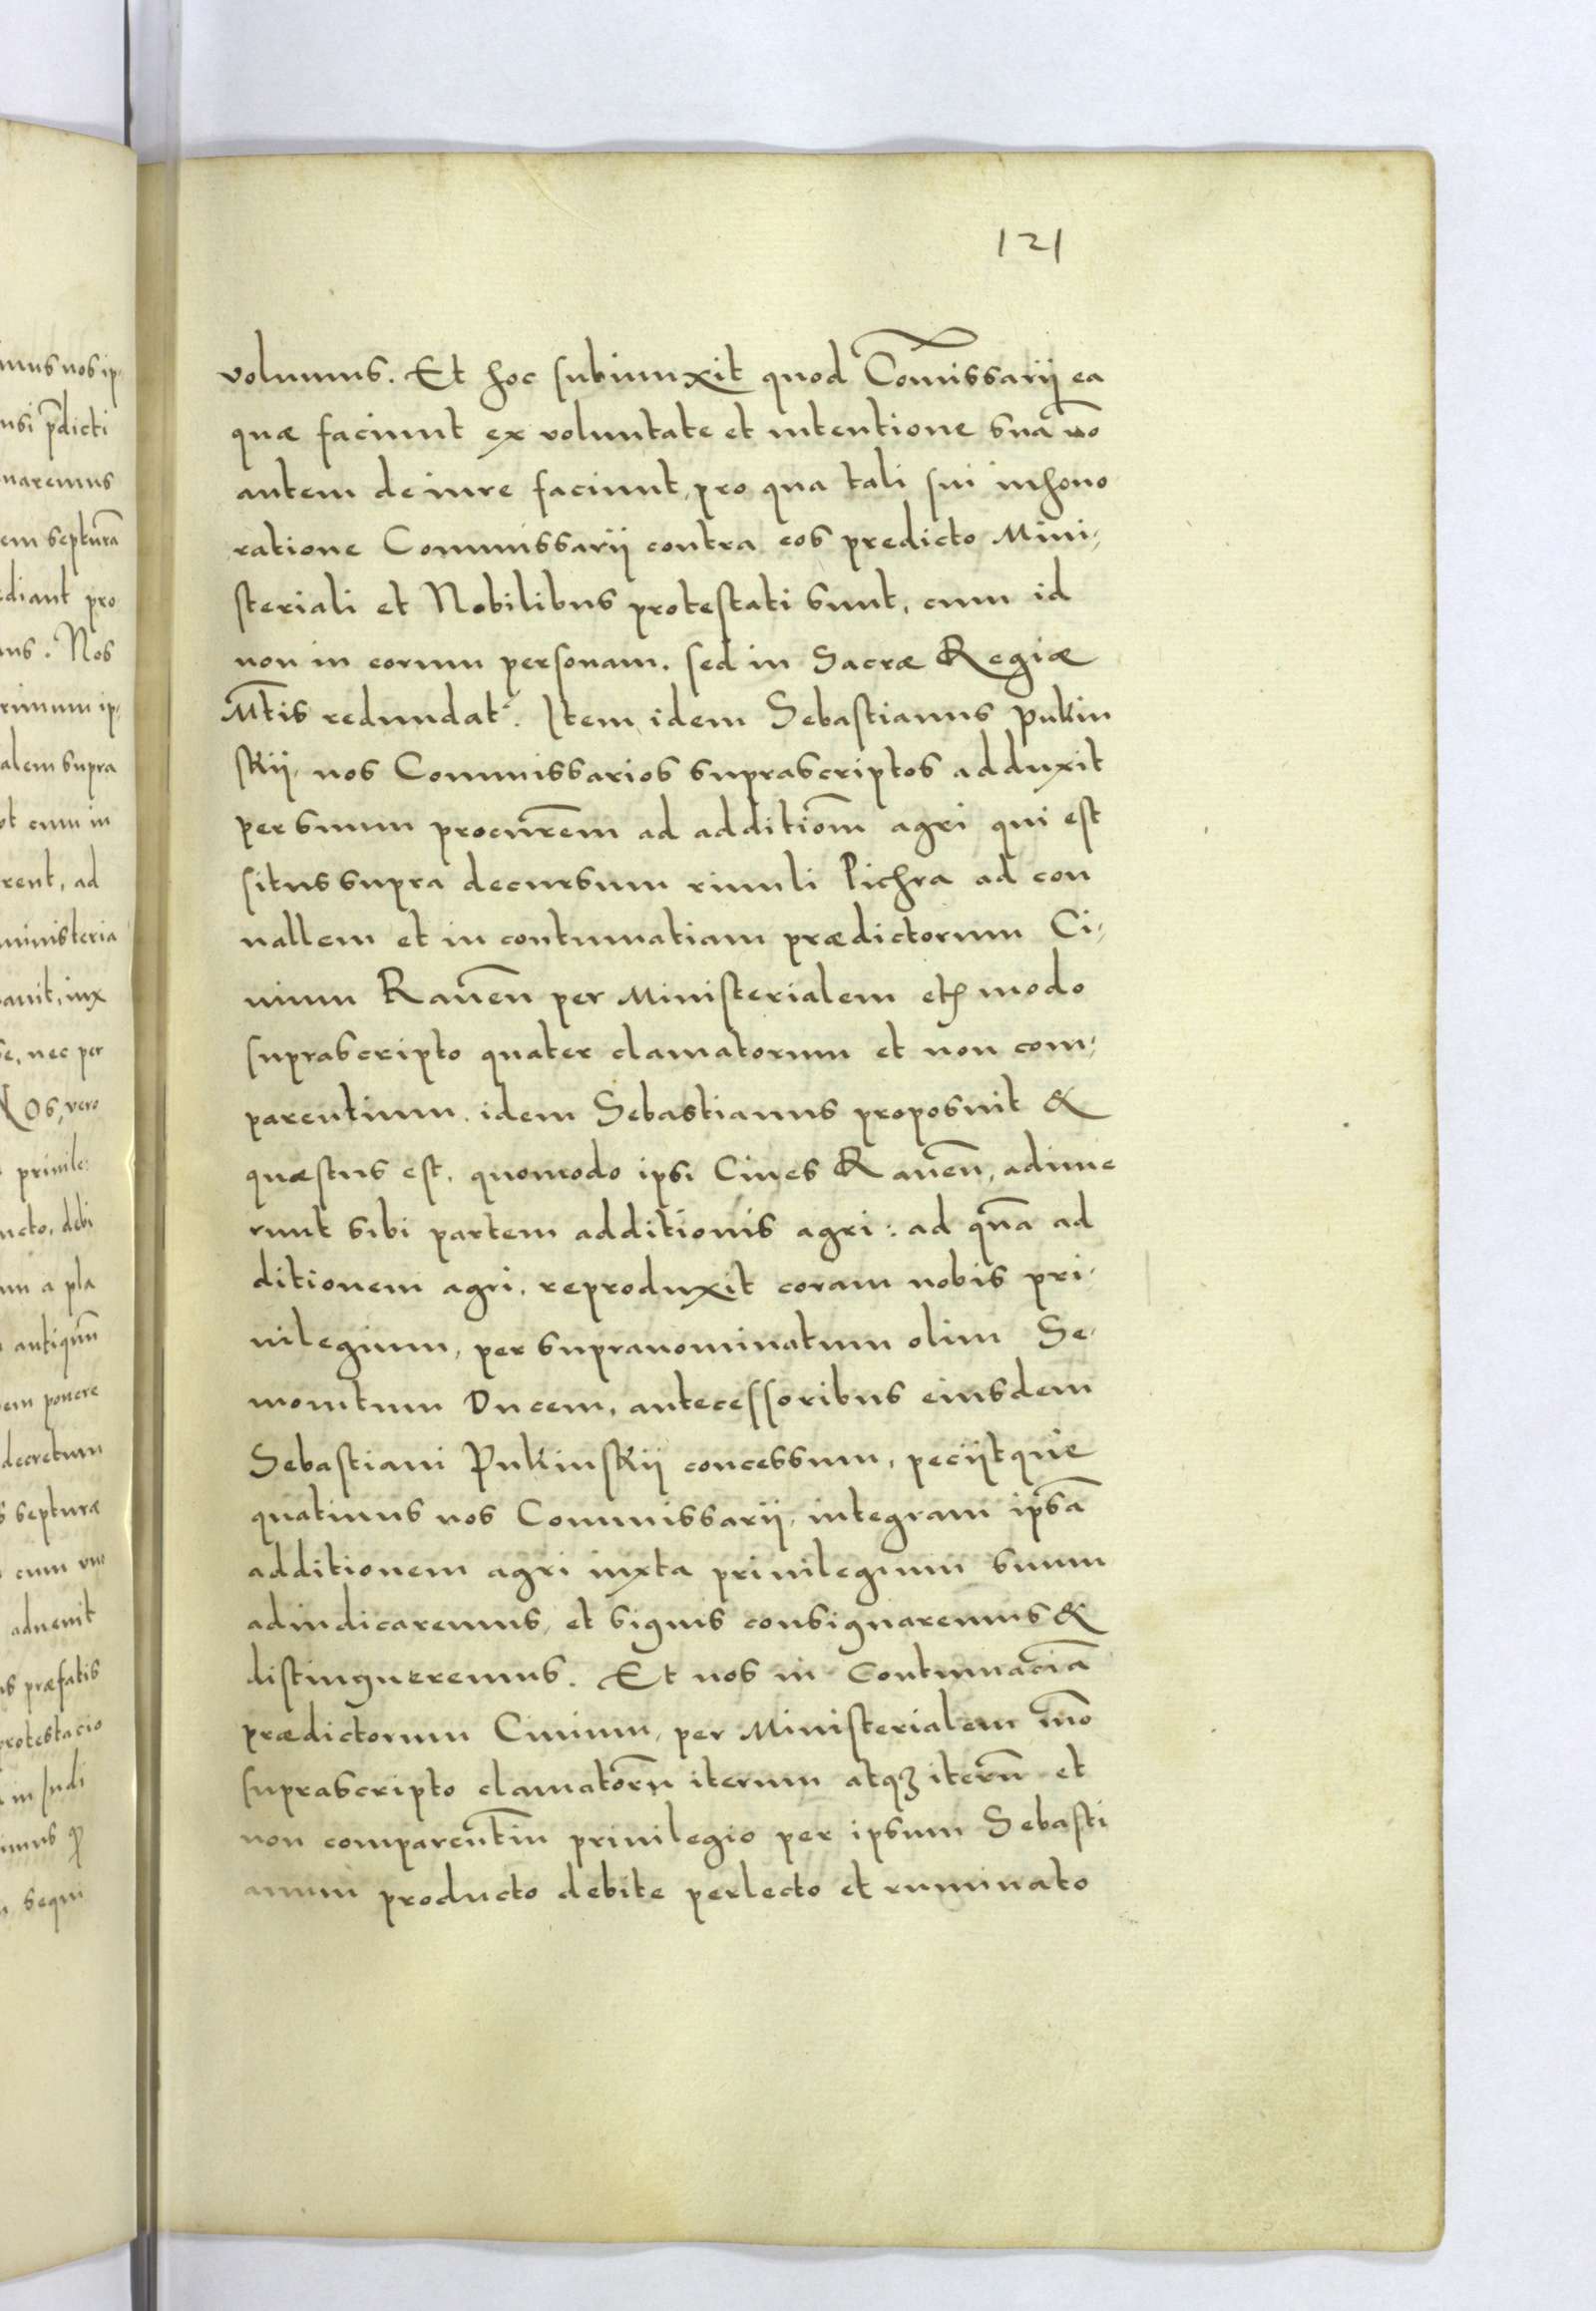 121
volumus. Et hoc subiunxit quod Comissarij ea
quæ faciunt ex voluntate et intentione suã nõ
autem de iure faciunt, pro qua tali sui inhono
ratione Commissarij contra eos predicto Mini,
steriali et Nobilibus protestati sunt, cum id
non in eorum personam. sed in Sacræ Regiæ
Mtis redundat. Item idem Sebastianus Pukin
skij, nos Commissarios suprascriptos adduxit
per suum procurem̃ ad additiom̃ agri qui est
situs supra decursum riuuli Pichra ad con
uallem et in contumatiam prædictorum Ci,
uium Rauen̄ per Ministerialem modo
suprascripto quater clamatorum et non com,
parentium. idem Sebastianus proposuit &
quæstus est, quomodo ipsi Ciues Rauen̄, adime
runt sibi partem additionis agri: ad qua̅ ad
ditionem agri, reproduxit coram nobis pri,
uilegium, per supranominatum olim Se,
montum Ducem, antecessoribus eiusdem
Sebastiani Pukinskij concessum, pecijtque
quatinus nos Commissarij, integram ipsã
additionem agri iuxta priuilegium suum
adiudicaremus, et signis consignaremus &
distingueremus. Et nos in contumaciã
prædictorum Ciuium, per Ministerialem mõ
suprascripto clamatorũ iterum atq3 iterũ et
non comparentiũ priuilegio per ipsum Sebasti
anum producto debite perlecto et ruminato
mus nos ip,
nsi p̃dicti
naremus
em septurã
diant pro
us. Nos
rimum ip,
alem supra
ot cum in
rent, ad
ministeria
auit, iux
se, nec per
Nos, vero
priuile:
ucto, debi
um a pla
antiquũ
em ponere
decretum
s septuræ
cum
aduenit
is præfatis
protestacio
in Iudi
imus
sequi